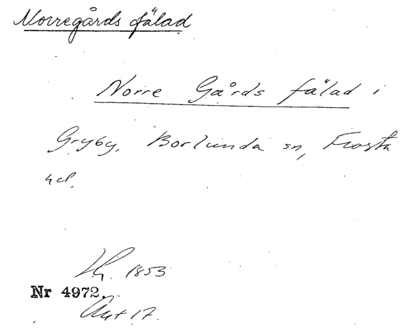 Norregårds fälad
Norre Gårds fälad i
Gryby, Borlunda sn, Frosta
hd.
Hg. 1853
Nr 4972.
Akt 17.